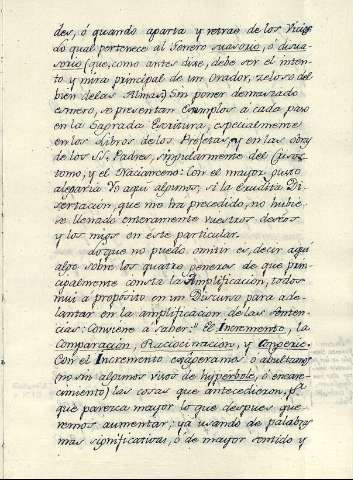 des, ó quando aparta y retrae de los Vicios
lo qual pertenece al Genero suasorio, ó disua-
sorio (que, como antes dixe, debe ser el inten-
to y mira principal de un Orador, zeloso del
bien de las Almas.) Sin poner demasiado
esmero, se presentan Exemplos a cada paso
en la Sagrada Escritura, especialmente
en los Libros de los Profetas, y en las obras
de los SS. Padres, singularmente del Crisos-
tomo, y el Nacianceno: Con el mayor gusto
alegaria Yo aqui algunos, si la erudita Di-
sertación, que me ha precedido, no hubie-
se llenado enteramente vuestros deseos
y los mios en éste particular.
Lo que no puedo omitir es, decir aqui
algo sobre los quatro generos de que prin-
cipalmente consta la Amplificación, todos
mui a proposito en un Discurso para ade-
lantar en la amplificacion de las Senten-
cias: Conviene a saber: El Incremento, la
Comparación, Raciocinacion, y Congerie.
Con el Incremento exâgeramos ó abultamos
(no sin algunos visos de hyperbole, ó encare-
cimiento) las cosas que antecedieron, pa.
que parezca mayor lo que despues que-
remos aumentar; yá usando de palabras
mas significativas, ó de mayor sentido y